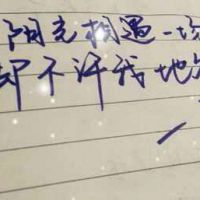 阳光相遇一场
却不许我地